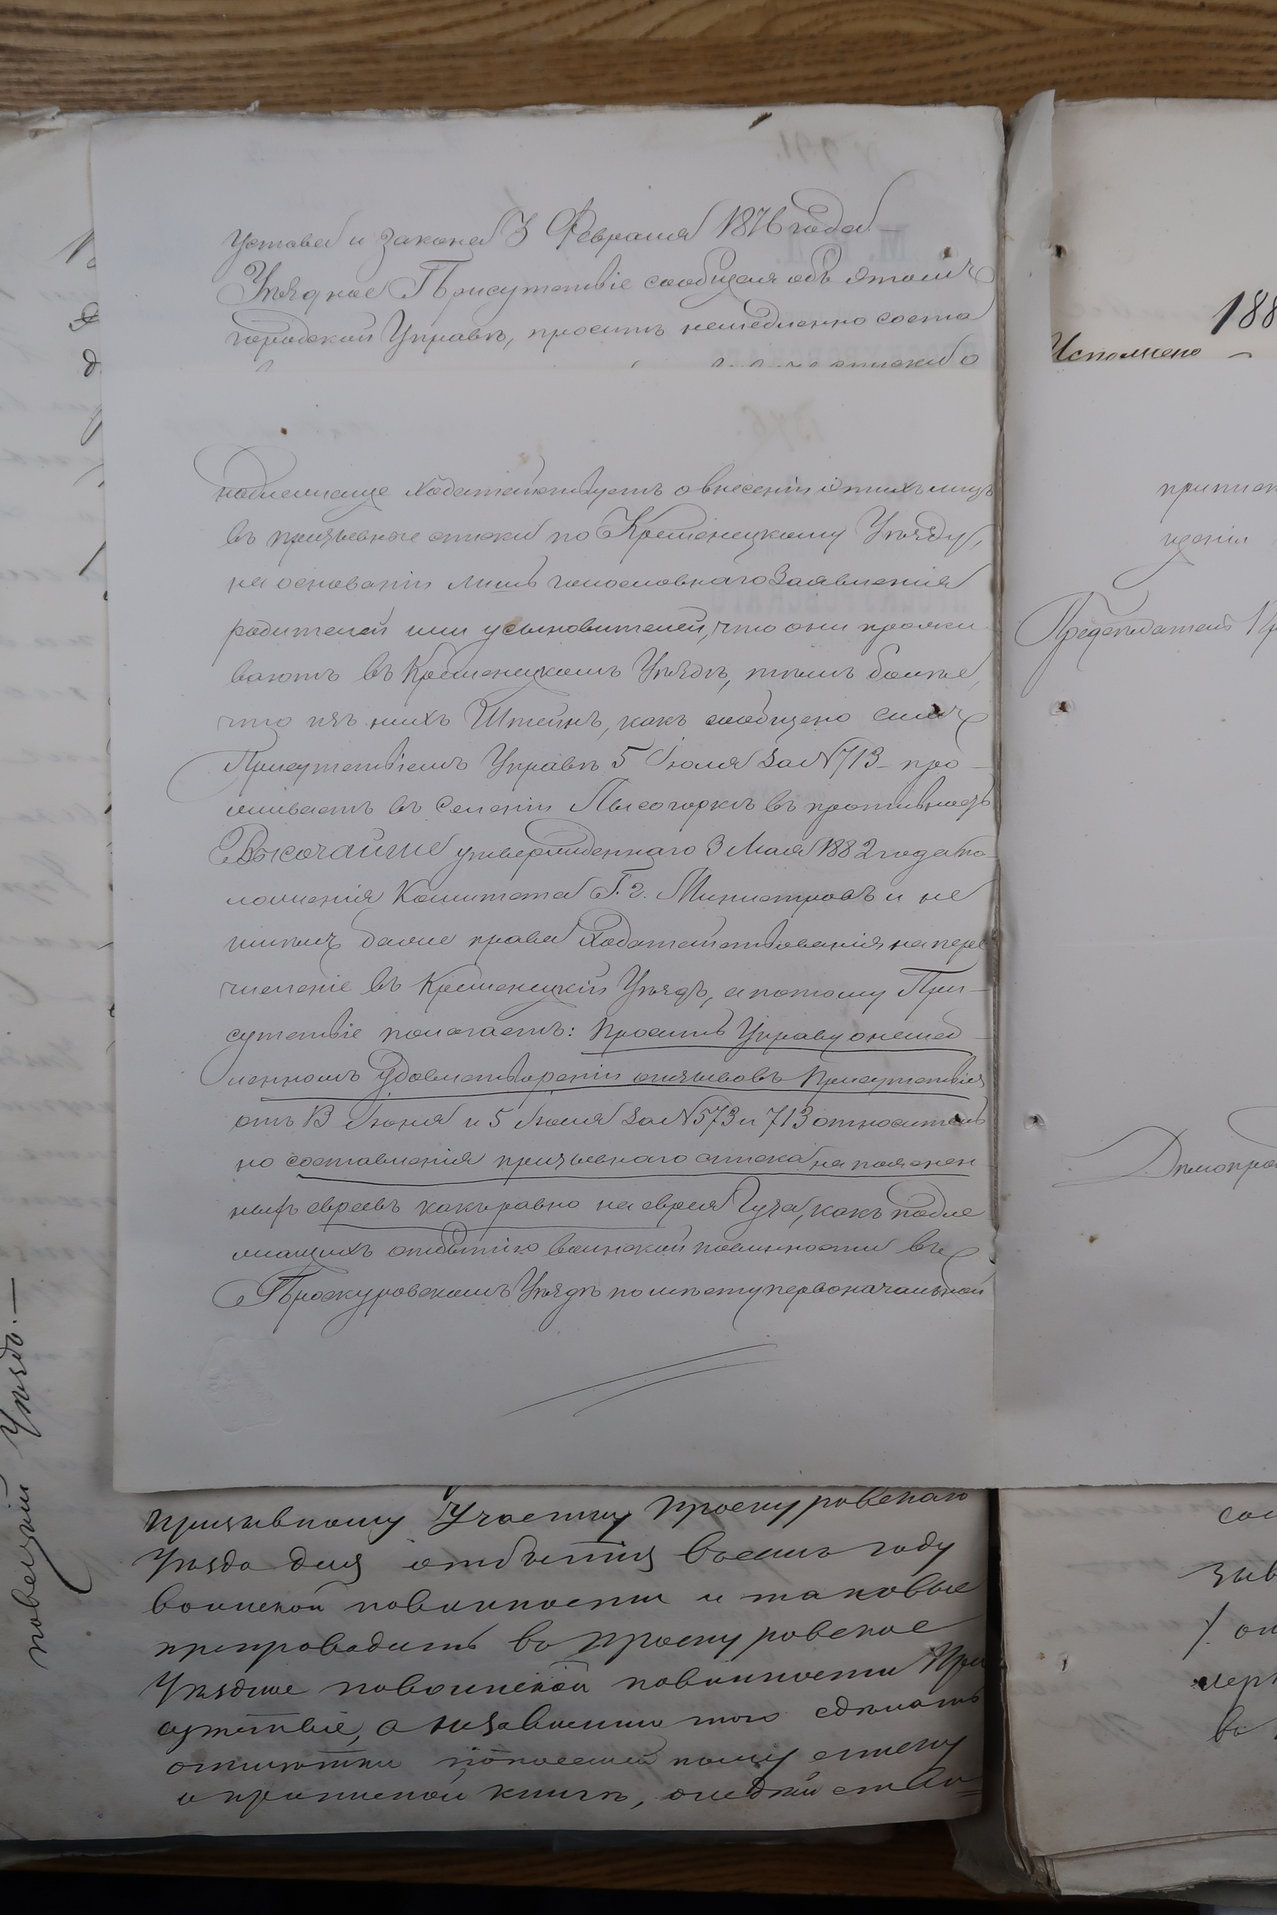 Устава и закона 3 Февраля 1876 года
Уѣздное Присутствіе сообщая объ этомъ
городской Управѣ, проситъ немедленно соста
надлежаще ходатайствуетъ о внесеніи этихъ лицъ
въ призывные списки по Кременецкому Уѣзду,
на основаніи лишь голословнаго заявленія
родителей или усыновителей, что они прожи
ваютъ въ Кременецкомъ Уѣздѣ, тѣмъ болѣе,
что изъ нихъ Штейнъ, какъ сообщено симъ
Присутствіемъ Управѣ 5 Іюля за № 713 про-
живаетъ въ селеніи Лысогоркѣ въ противность
Высочайше утвержденнаго 3 Мая 1882 года по-
ложенія Комитета Г.г. Министровъ и не
имѣетъ болѣе права ходатайствованія на пере
численіе въ Кременецкій Уѣздъ, а потому При-
сутствіе полагаетъ: просить Управу о немед-
ленномъ удовлетвореніи отзывовъ Присутствія
отъ 13 Іюня и 5 Іюля за № 573 и 713 относитель
но составленія призывнаго списка на пояснен
ныхъ евреевъ какъ равно на еврея Гуза, какъ подле
жащихъ отбытію воинской повинности въ
Проскуровскомъ Уѣздѣ по мѣсту первоначальной
188
Исполнено
припис
Предсѣдатель
Дѣлопро
Уѣздъ. —
призывному Участку Проскуровскаго
Уѣзда для отбытія въ семъ году
воинской повинности и таковые
препроводить въ Проскуровское
Уѣздное по воинской повинности При
сутствіе, а независимо того сдѣлать
отмѣтки по посемейному списку
и приписной книгѣ,
сос
зыв
въ